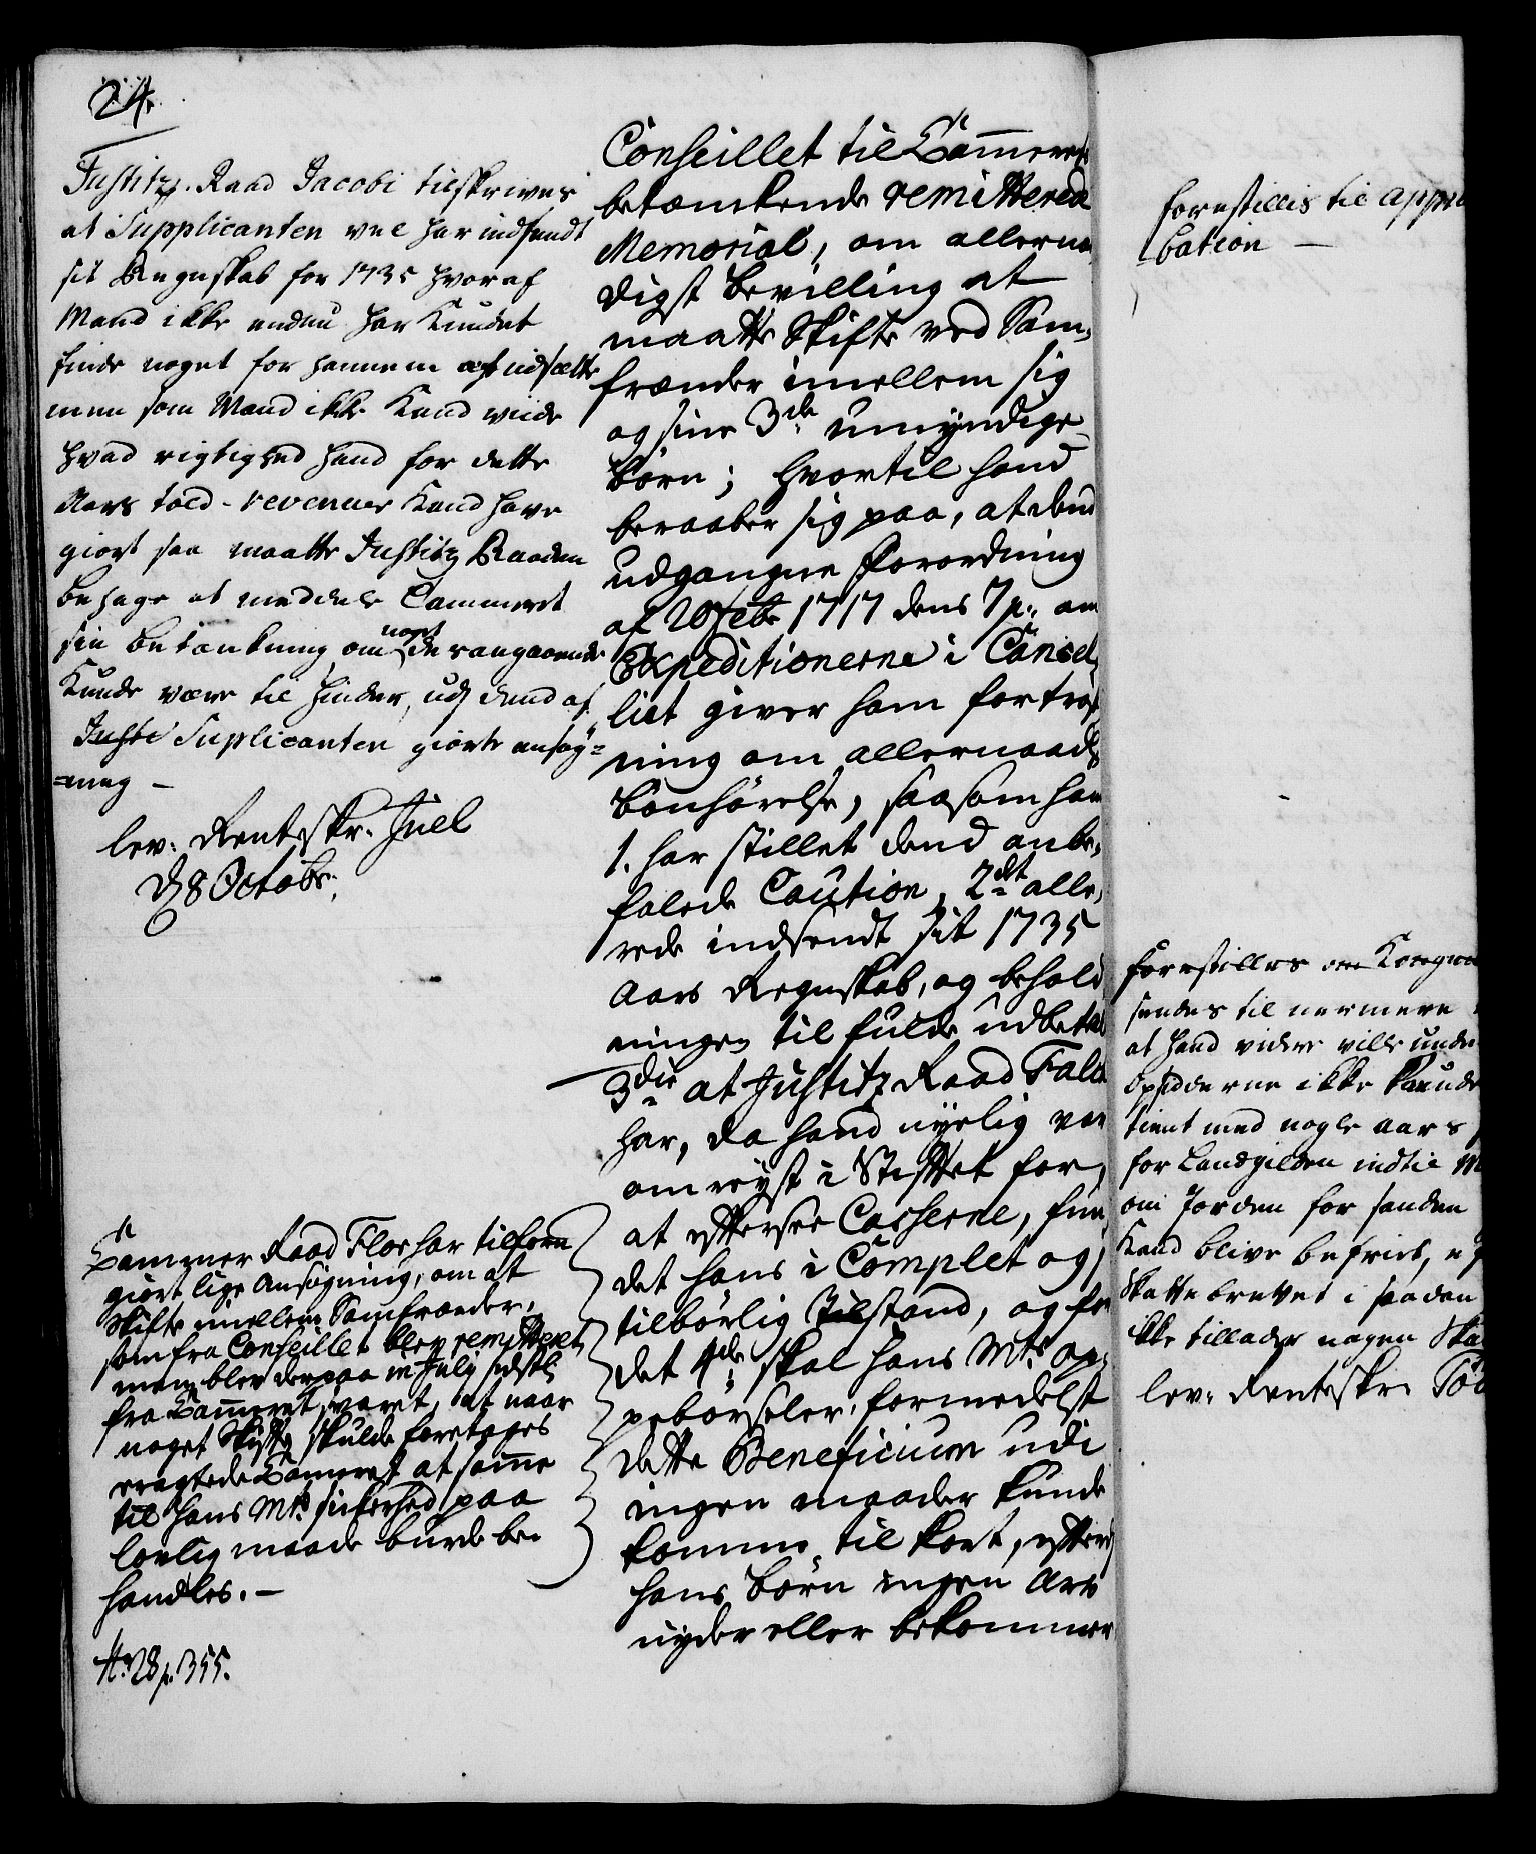 24.
Justitz-Raad Jacobi tilskrives
at Supplicanten vel har indsendt
sit Regnskab for 1735 hvoraf
Mand ikke endnu har Kundet
finde noget for hannem at udsætte
men som Mand ikke Kand viide
hvad rigtighed hand for dette
Aars told-revenuer Kand have
giort saa maatte Justitz Raaden
behage at meddele Cammeret
sin betænkning om noget derangaaende
Kunde være til hinder, udj dend af
Justi Suplicanten giorte ansøg=
=ning –
lev: Renteskr. Juel
D 8 Octobr:
Cammer Raad Flor har tilforn
giort lige Ansøgning, om at
Skifte imellem Samfrænder,
som fra Conseillet blev remitteret,
men blev derpaa in July sidstl
fra Cammeret svaret, at naar
noget Skifte skulde foretages
eragtede Cammeret at samme
til hans Mts sikerhed paa
lovlig maade burde be-
handles. –
No 28 p. 355.
Conseillet til Cammerets
betænkende remitterede
Memorial, om allerna
digst bevilling at
maatte Skifte ved Sam,
frænder imellem sig
og sine 3de umyndige
børn; hvortil hand
beraaber sig paa, at dend
udgangne Forordning
af 20 Febr 1717 dens 7 p. om
Expeditionerne i Cancel,
liet giver ham fortrøst
ning om allernaads
bønhørelse, saasom han
1. har stillet dend anbe,
falede Caution, 2det alle,
rede indsendt sit 1735
Aars Regnskab, og behold
ningen til fulde udbetal
3die at Justitz Raad Falch
har, da hand nyelig var
omreyst i Stiftet for,
at efftersee Casserne, fun
det hans i Complet og
tilbørlig Tilstand, og for
det 4de skal hans Mts op,
peborseler formedelst
dette Beneficium udi
ingen maader kunde
komme til kort, efftersom
hans børn ingen Arv
nyder eller bekommer
forestillis til appro
bation –
forestilles
sendes til nermere
at hand videre ville unde
Opsidderne ikke kunde
tient med nogle aars
for Landgilden indtil
om Jorden for sanden
Kand blive befried,
Skattebrevet i saaden
ikke tillader nogen Ska
lev: Renteskr: